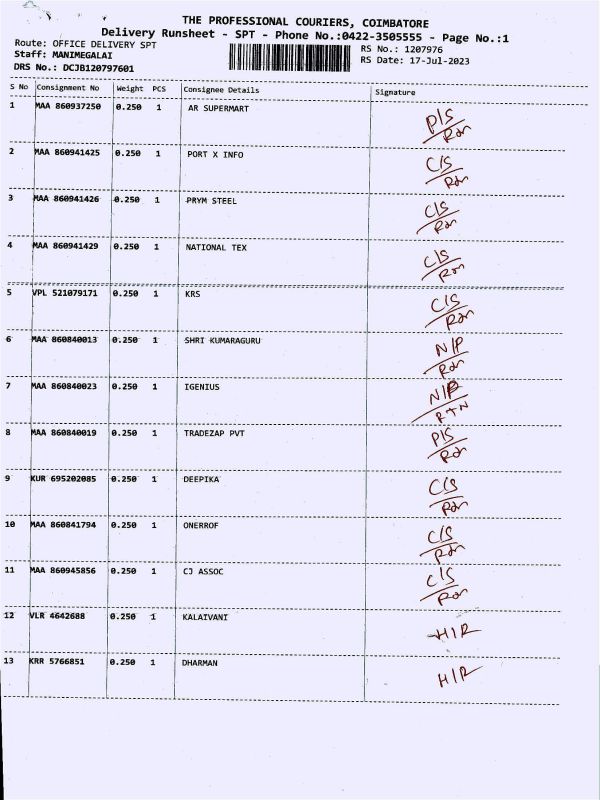 THE PROFESSIONAL COURIERS, COIMBATORE
Delivery Runsheet - SPT - Phone No.:0422-3505555 - Page No.:1
Route: OFFICE DELIVERY SPT
RS No.: 1207976
Staff: MANIMEGALAI
RS Date: 17-Jul-2023
DRS No.: DCJB120797601
S No Consignment No Weight PCS Consignee Details Signature
1 MAA 860937250 0.250 1 AR SUPERMART P/S
2 MAA 860941425 0.250 1 PORT X INFO C/S
3 MAA 860941426 0.250 1 PRYM STEEL C/S
4 MAA 860941429 0.250 1 NATIONAL TEX C/S
5 VPL 521079171 0.250 1 KRS C/S
6 MAA 860840013 0.250 1 SHRI KUMARAGURU N/P
7 MAA 860840023 0.250 1 IGENIUS N/P
RTN
8 MAA 860840019 0.250 1 TRADEZAP PVT P/S
9 KUR 695202085 0.250 1 DEEPIKA C/S
10 MAA 860841794 0.250 1 ONERROF C/S
11 MAA 860945856 0.250 1 CJ ASSOC C/S
12 VLR 4642688 0.250 1 KALAIVANI H/R
13 KRR 5766851 0.250 1 DHARMAN H/R